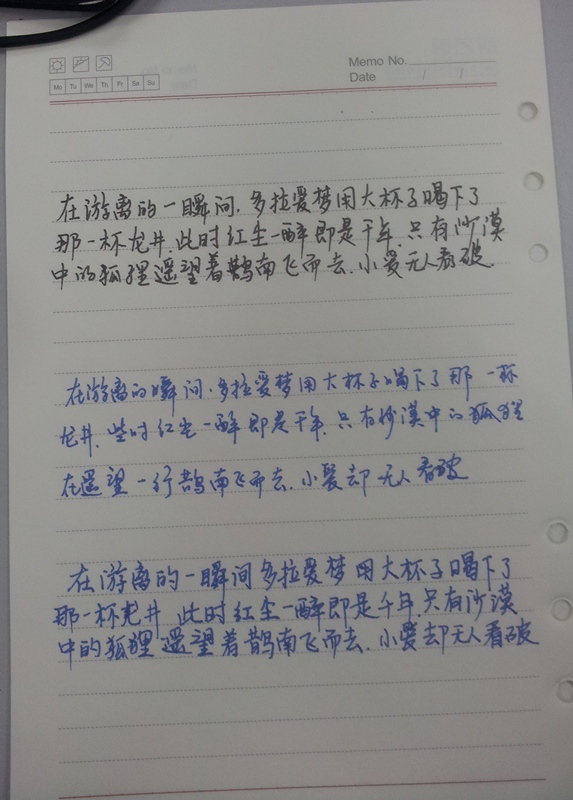 Memo No.
Mo Tu We Th Fr Sa Su
Date / /
在游离的一瞬间,多拉爱梦用大杯子喝下了
那一杯龙井,此时红尘一醉即是千年,只有沙漠
中的狐狸遥望着鹊南飞而去.小爱无人看破.
在游离的瞬间,多拉爱梦用大杯子喝下了那一杯
龙井,些时红尘一醉即是千年,只有沙漠中的狐狸
在遥望一行鹊南飞而去.小爱却无人看破
在游离的一瞬间多拉爱梦用大杯子喝下了
那一杯龙井 此时红尘一醉即是千年,只有沙漠
中的狐狸遥望着鹊南飞而去.小爱却无人看破